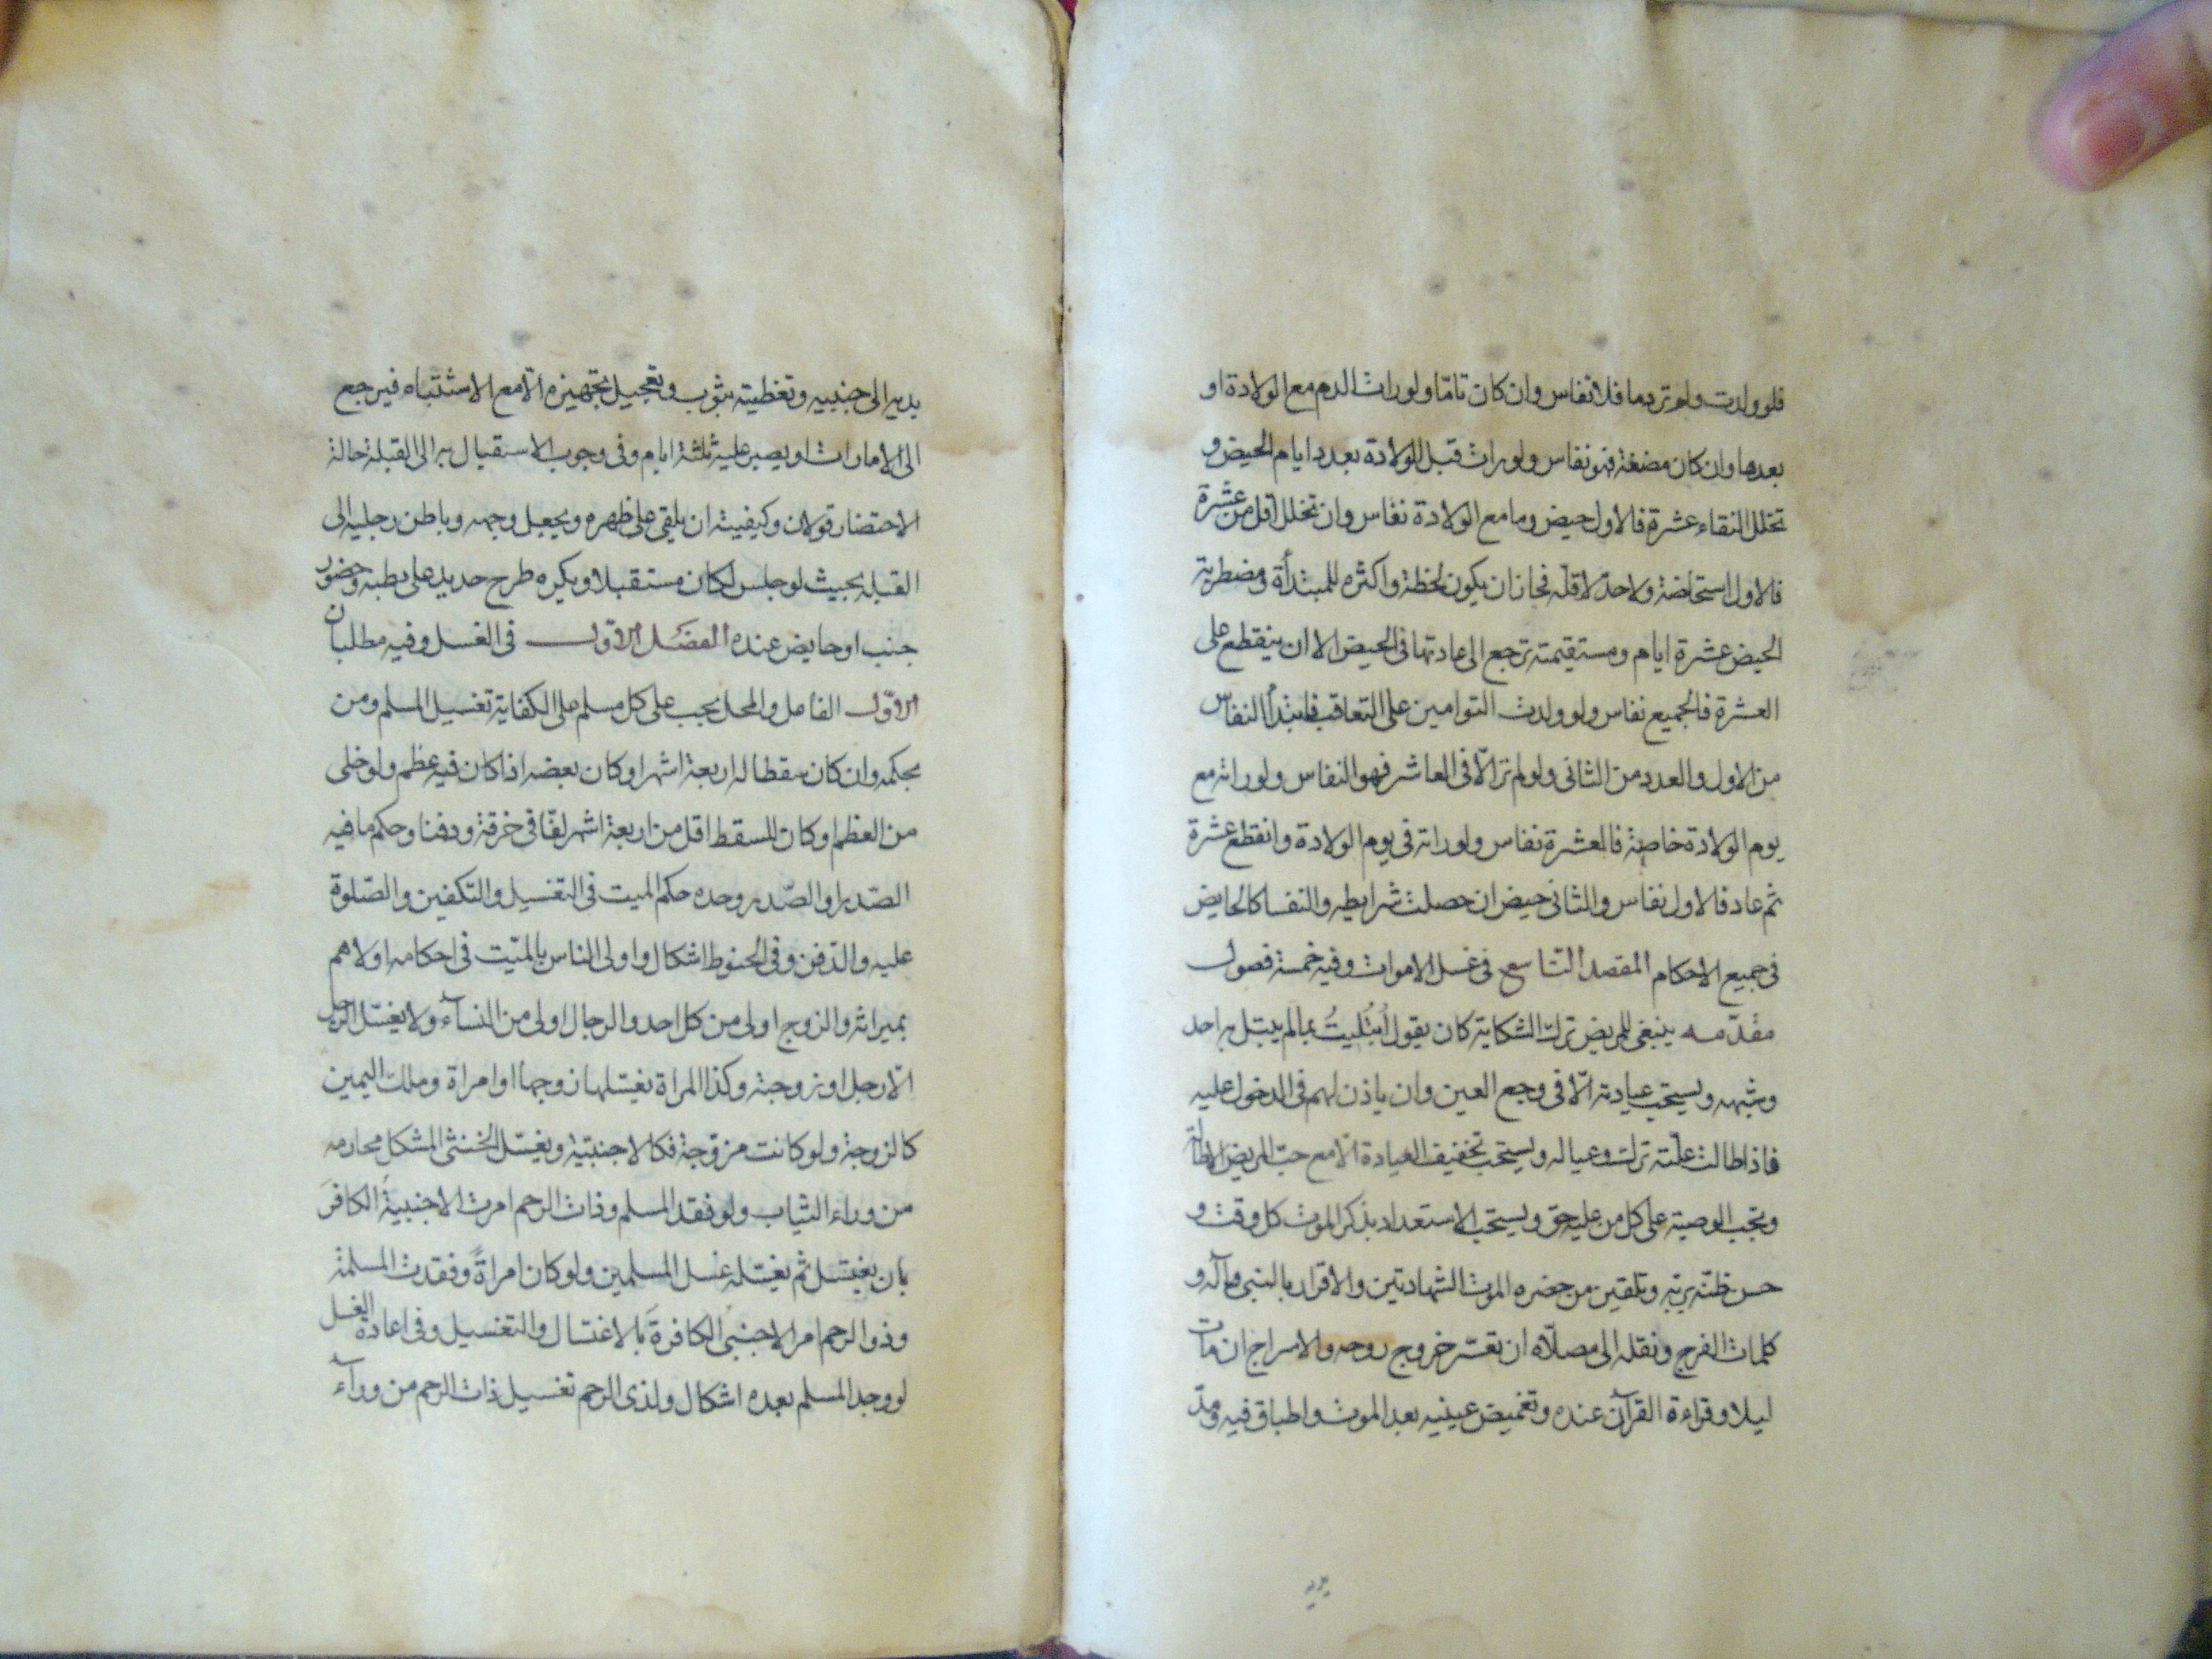 فلو ولدت ولم تر دما فلا نفاس وان كان تاما ولو رات الدم مع الولادة او
بعدها وان كان مضغة فهو نفاس ولو رات قبل الولادة بعدد ايام الحيض و
تخلل النقاء عشرة فالاول حيض وما مع الولادة نفاس وان تخلل اقل من عشرة
فالاول استحاضة ولا حد لاقله فجاز ان يكون لحظة واكثره للمبتدأة ومضطربة
الحيض عشرة ايام ومستقيمته ترجع الى عادتها فى الحيض الا ان ينقطع على
العشرة فالجميع نفاس ولو ولدت التوامين على التعاقب فابتدأ النفاس
من الاول والعدد من الثانى ولو لم تر الّا فى العاشر فهو النفاس ولو راته مع
يوم الولادة خاصة فالعشرة نفاس ولو راته فى يوم الولادة وانقطع عشرة
ثم عاد فالاول نفاس والثانى حيض ان حصلت شرايطه والنفسا كالحايض
فى جميع الاحكام المقصد التاسع فى غسل الاموات وفيه خمسة فصول
مقدّمه ينبغى للمريض ترك الشكاية كان يقول اُبتُليتُ بما لم يبتل به احد
وشبهه ويستحب عيادته الّا فى وجع العين وان ياذن لهم فى الدخول عليه
فاذا طالت علّته ترك وعياله ويستحب تخفيف العيادة الّا مع حبّ المريض الاطالة
وتجب الوصية على كل من عليه حق ويستحب الاستعداد بذكر الموت كل وقت و
حسن ظنّه بربّه وتلقين من حضره الموت الشهادتين والاقرار بالنبى وآله و
كلمات الفرج ونقله الى مصلّاه ان تعسّر خروج روحه والاسراج ان مات
ليلا وقراءة القرآن عنده وتغميض عينيه بعد الموت واطباق فيه ومدّ
يديه
يديه الى جنبيه وتغطيته بثوب وتعجيل تجهيزه الّا مع الاشتباه فيرجع
الى الامارات او يصبر عليه ثلثة ايام وفى وجوب الاستقبال به الى القبلة حالة
الاحتضار قولان وكيفيته ان يلقى على ظهره ويجعل وجهه وباطن رجليه الى
القبلة بحيث لو جلس لكان مستقبلا ويكره طرح حديد على بطنه وحضور
جنب او حايض عنده الفصل الاوّل فى الغسل وفيه مطلبان
الاوّل الفاعل والمحل يجب على كل مسلم على الكفاية تغسيل المسلم ومن
بحكمه وان كان سقطا له اربعة اشهر او كان بعضه اذا كان فيه عظم ولو خلى
من العظم او كان للسقط اقل من اربعة اشهر لفّا فى خرقة ودفنا وحكم ما فيه
الصّدر او الصّدر وحده حكم الميت فى التغسيل والتكفين والصّلوة
عليه والدّفن وفى الحنوط اشكال واولى الناس بالميّت فى احكامه اولاهم
بميراثه والزوج اولى من كل احد والرجال اولى من النسآء ولا يغسّل الرجل
الّا رجل او زوجته وكذا المراة يغسّلها زوجها او امراة وملك اليمين
كالزوجة ولو كانت مزوّجة فكالاجنبيّة ويغسّل الخنثى المشكل محارمه
من وراء الثياب ولو فقد المسلم وذات الرحم امرت الاجنبيةُ الكافرَ
بان يغتسل ثم يغسّله غسل المسلمين ولو كان امراةً وفقدت المسلمة
وذو الرحم امر الاجنبىُ الكافرةَ بالاغتسال والتغسيل وفى اعادة الغسل
لو وجد المسلم بعده اشكال ولذى الرحم تغسيل ذات الرحم من ورآء